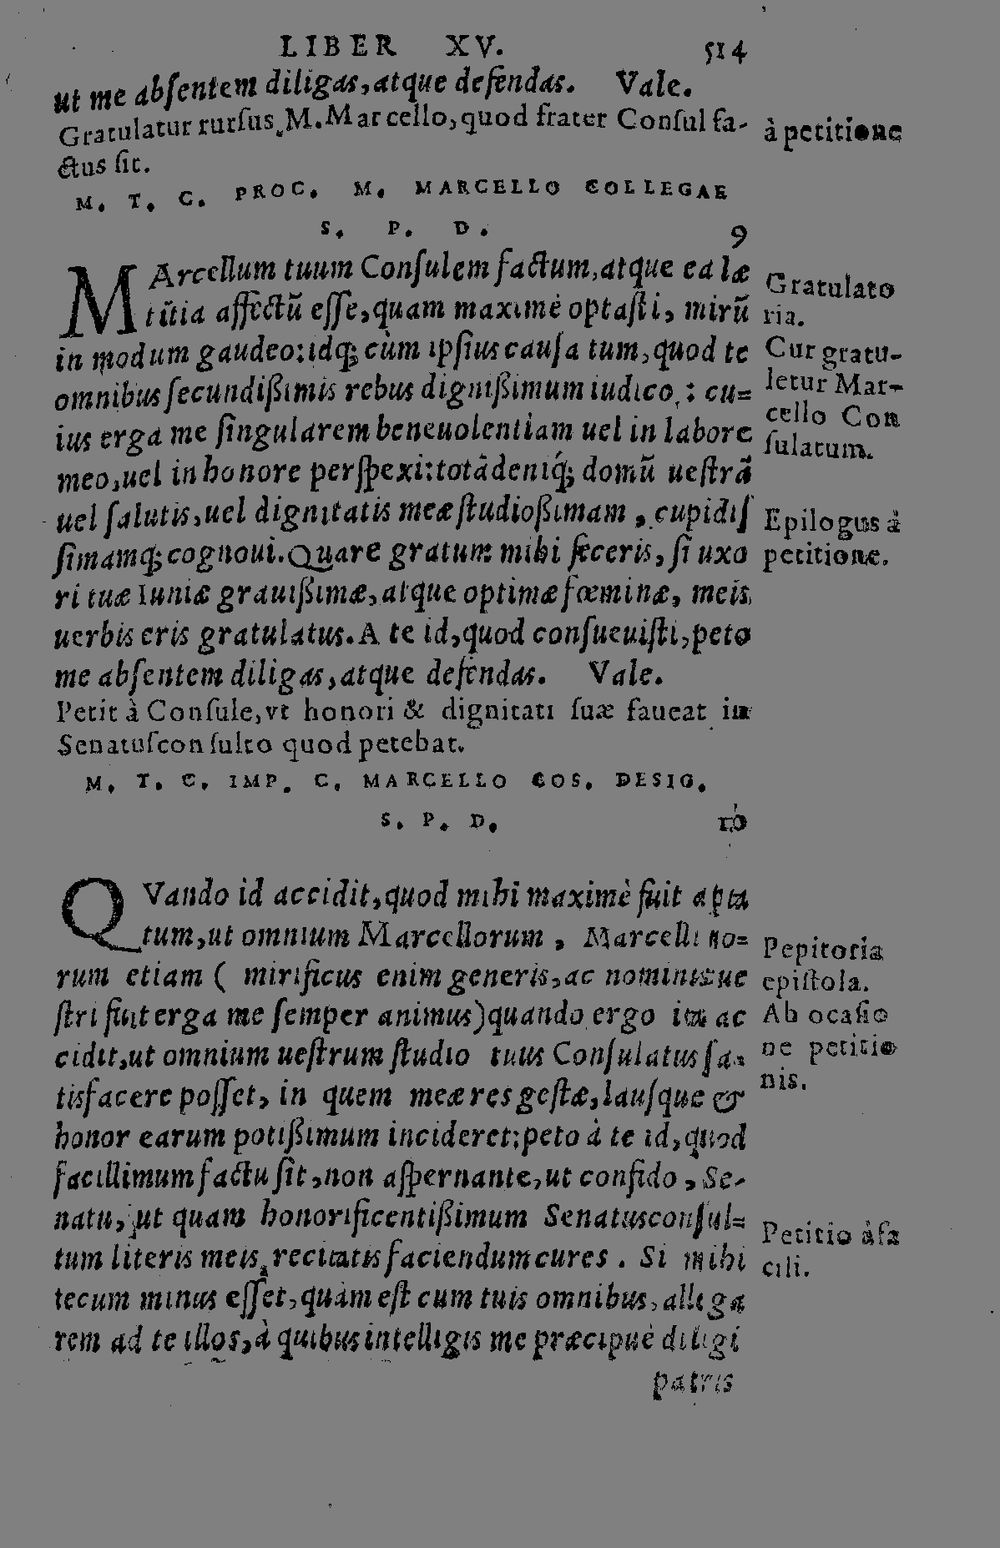 LIBER XV. 514
ut me abſentem diligas, atque defendas. Vale.
Gratulatur rurſus M. Marcello, quod frater Conſul fa-
ctus ſit.
à petitione
M. T. C. PROC. M. MARCELLO COLLEGAE
S. P. D. 9
MArcellum tuum Conſulem factum, atque ea læ
titia affectũ eſſe, quam maximè optaſti, mirũ
in modum gaudeo: idq; cùm ipſius cauſa tum, quod te
omnibus ſecundißimis rebus dignißimum iudico: cu=
ius erga me ſingularem beneuolentiam uel in labore
meo, uel in honore perſpexi: totã deniq́; domũ ueſtrã
uel ſalutis, uel dignitatis meæ ſtudioßimam, cupidiſ
ſimamq; cognoui. Quare gratum mihi feceris, ſi uxo
ri tuæ Iuniæ grauißimæ, atque optimæ fœminæ, meis
uerbis eris gratulatus. A te id, quod conſueuiſti, peto
me abſentem diligas, atque defendas. Vale.
Gratulato
ria.
Cur gratu-
letur Mar-
cello Con
ſulatum.
Epilogus à
petitione.
Petit à Conſule, vt honori & dignitati ſuæ faueat in
Senatuſconſulto quod petebat.
M. T. C. IMP. C. MARCELLO COS. DESIG.
S. P. D. 10
QVando id accidit, quod mihi maximè fuit apta
tum, ut omnium Marcellorum, Marcelli no=
rum etiam ( mirificus enim generis, ac nominis ue
ſtri fuit erga me ſemper animus) quando ergo ita ac
cidit, ut omnium ueſtrum ſtudio tuus Conſulatus ſa-
tisfacere poſſet, in quem meæ res geſtæ, lauſque &
honor earum potißimum incideret; peto à te id, quod
facillimum factu ſit, non aſpernante, ut confido, Se-
natu, ut quam honorificentißimum Senatusconſul=
tum literis meis recitatis faciendum cures. Si mihi
tecum minus eſſet, quàm eſt cum tuis omnibus, allega
rem ad te illos, à quibus intelligis me præcipuè diligi
patris
Pepitoria
epiſtola.
Ab ocaſio
ne petitio
nis.
Petitio à fa
cili.